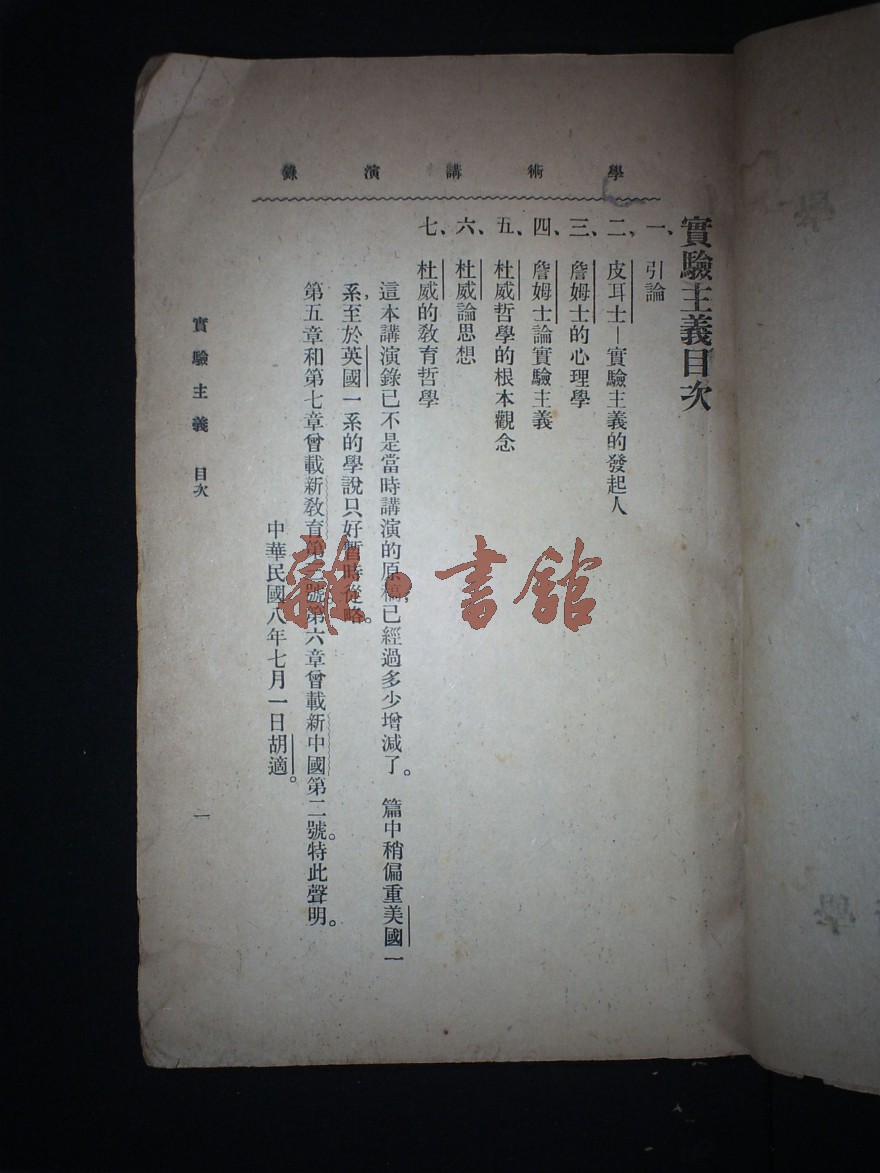 學術講演錄
實驗主義目次
一、引論
二、皮耳士—實驗主義的發起人
三、詹姆士的心理學
四、詹姆士論實驗主義
五、杜威哲學的根本觀念
六、杜威論思想
七、杜威的教育哲學
這本講演錄已不是當時講演的原稿，已經過多少增減了。篇中稍偏重美國一
系，至於英國一系的學說只好暫時從略。
第五章和第七章曾載新教育第三號，第六章曾載新中國第二號。特此聲明。
中華民國八年七月一日胡適。
實驗主義 目次
一
雜·書館
學
學